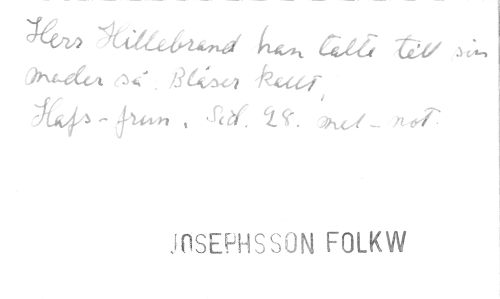 Herr Hillebrand han talte till sin
moder så. Blåser kallt,
Hafs-frun. Sid. 28. mel-not.
JOSEPHSSON FOLKW